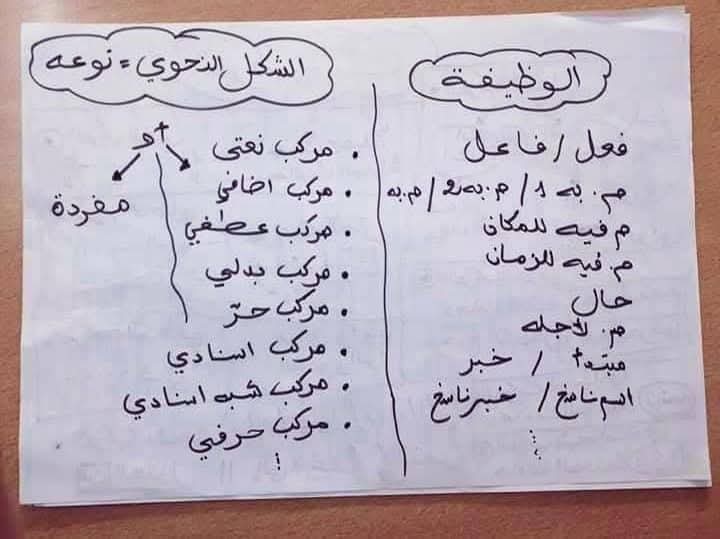 الوظيفة
فعل / فاعل
م. به 1 / م. به 2 / م. به
م فيه للمكان
م. فيه للزمان
حال
م. لأجله
مبتدأ / خبر
اسم ناسخ / خبر ناسخ
الشكل النحوي = نوعه
أو
مفردة
• مركب نعتي
• مركب اضافي
• مركب عطفي
• مركب بدلي
• مركب جرّ
• مركب اسنادي
• مركب شبه اسنادي
• مركب حرفي